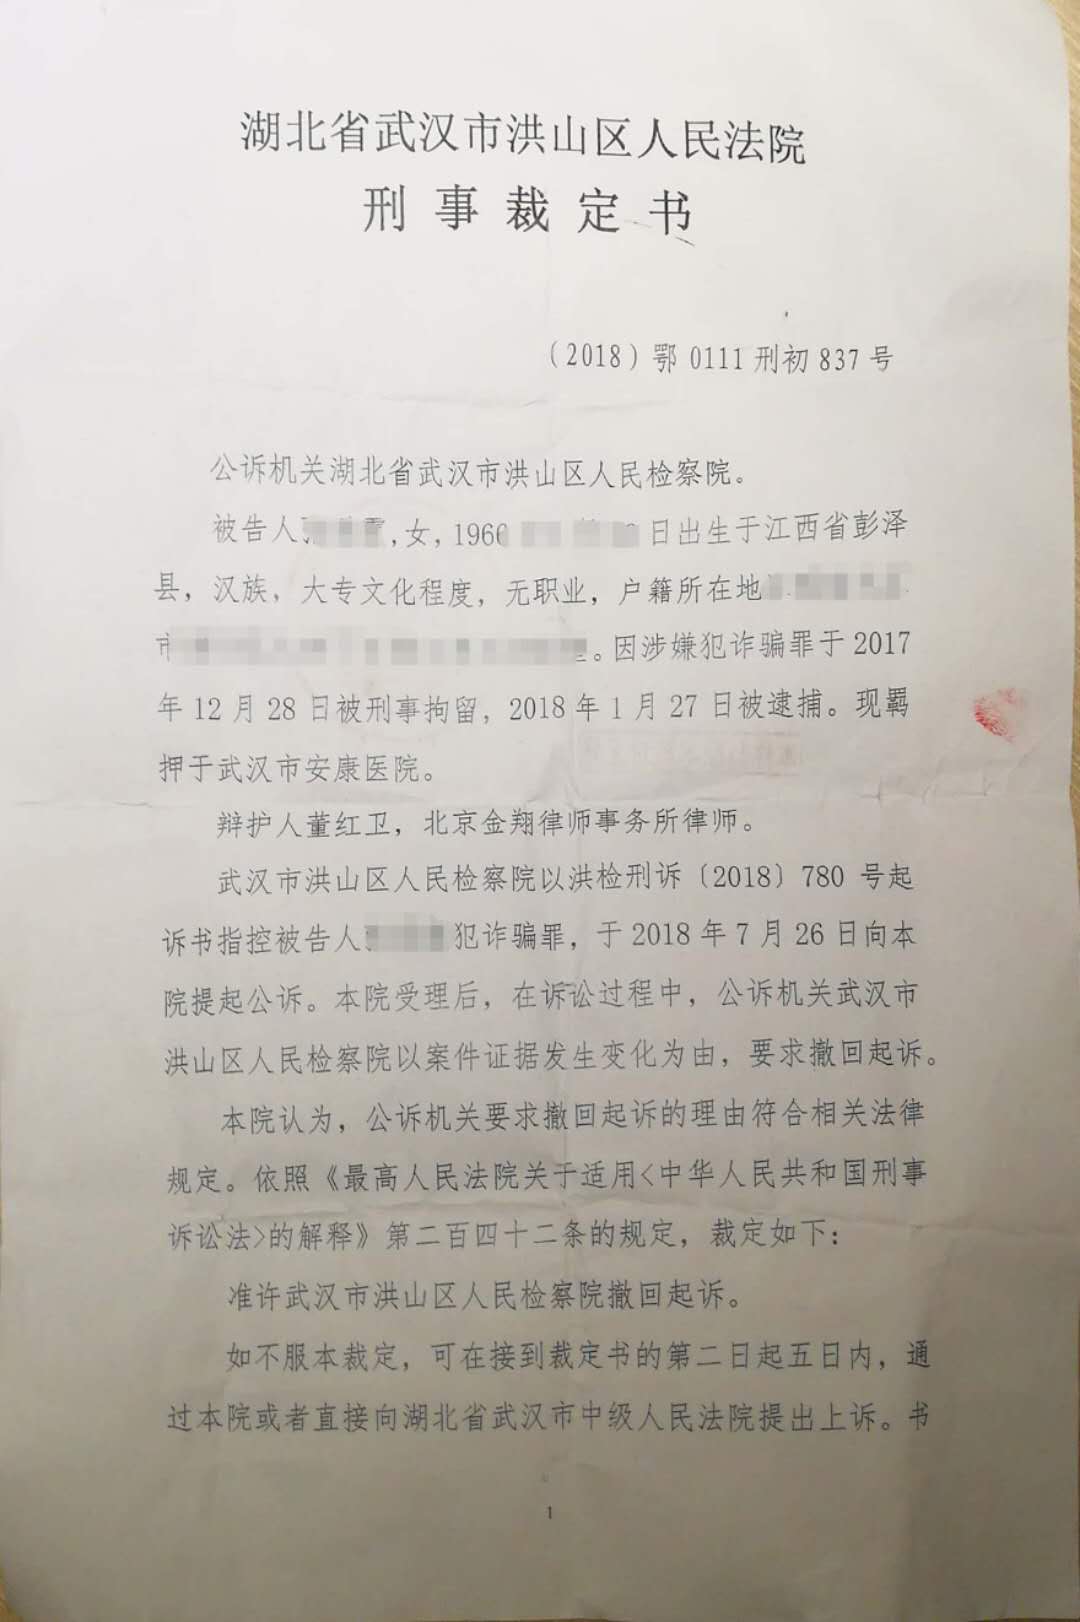 湖北省武汉市洪山区人民法院
刑事裁定书
（2018）鄂 0111 刑初 837 号
公诉机关湖北省武汉市洪山区人民检察院。
被告人 ,女, 1966 日出生于江西省彭泽
县，汉族，大专文化程度，无职业，户籍所在地
市 。因涉嫌犯诈骗罪于 2017
年 12 月 28 日被刑事拘留，2018 年 1 月 27 日被逮捕。现羁
押于武汉市安康医院。
辩护人董红卫，北京金翔律师事务所律师。
武汉市洪山区人民检察院以洪检刑诉〔2018〕780 号起
诉书指控被告人 犯诈骗罪，于 2018 年 7 月 26 日向本
院提起公诉。本院受理后，在诉讼过程中，公诉机关武汉市
洪山区人民检察院以案件证据发生变化为由，要求撤回起诉。
本院认为，公诉机关要求撤回起诉的理由符合相关法律
规定。依照《最高人民法院关于适用<中华人民共和国刑事
诉讼法>的解释》第二百四十二条的规定，裁定如下：
准许武汉市洪山区人民检察院撤回起诉。
如不服本裁定，可在接到裁定书的第二日起五日内，通
过本院或者直接向湖北省武汉市中级人民法院提出上诉。书
1